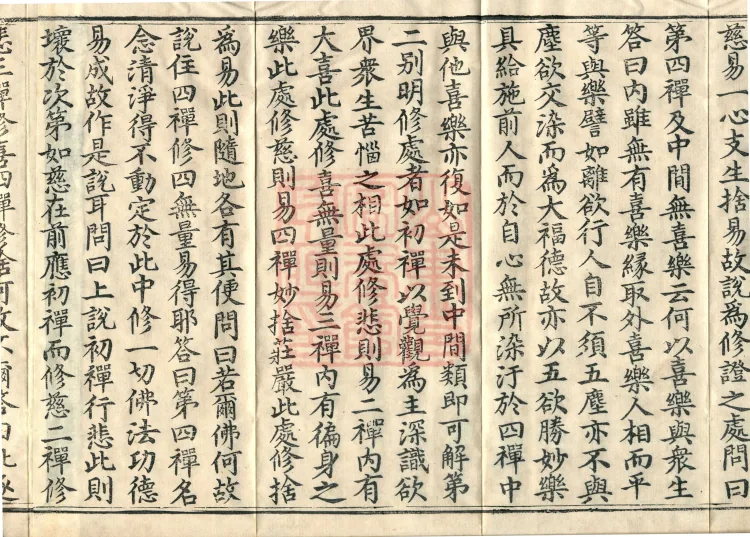 慈易一心支生捨易故說為修證之處問曰
第四禪及中間無喜樂云何以喜樂與衆生
答曰內雖無有喜樂緣取外喜樂人相而平
等與樂譬如離欲行人自不須五塵亦不與
塵欲交染而為大福德故亦以五欲勝妙樂
具給施前人而於自心無所染汙於四禪中
與他喜樂亦復如是未到中間類即可解第
二別明修處者如初禪以覺觀為主深識欲
界衆生苦惱之相此處修悲則易二禪內有
大喜此處修喜無量則易三禪內有徧身之
樂此處修慈則易四禪妙捨莊嚴此處修捨
為易此則隨地各有其便問曰若爾佛何故
說住四禪修四無量易得耶答曰第四禪名
念清淨得不動定於此中修一切佛法功德
易成故作是說耳問曰上說初禪行悲此則
壞於次第如慈在前應初禪而修慈二禪修
悲三禪修喜四禪修捨何故不爾答曰此